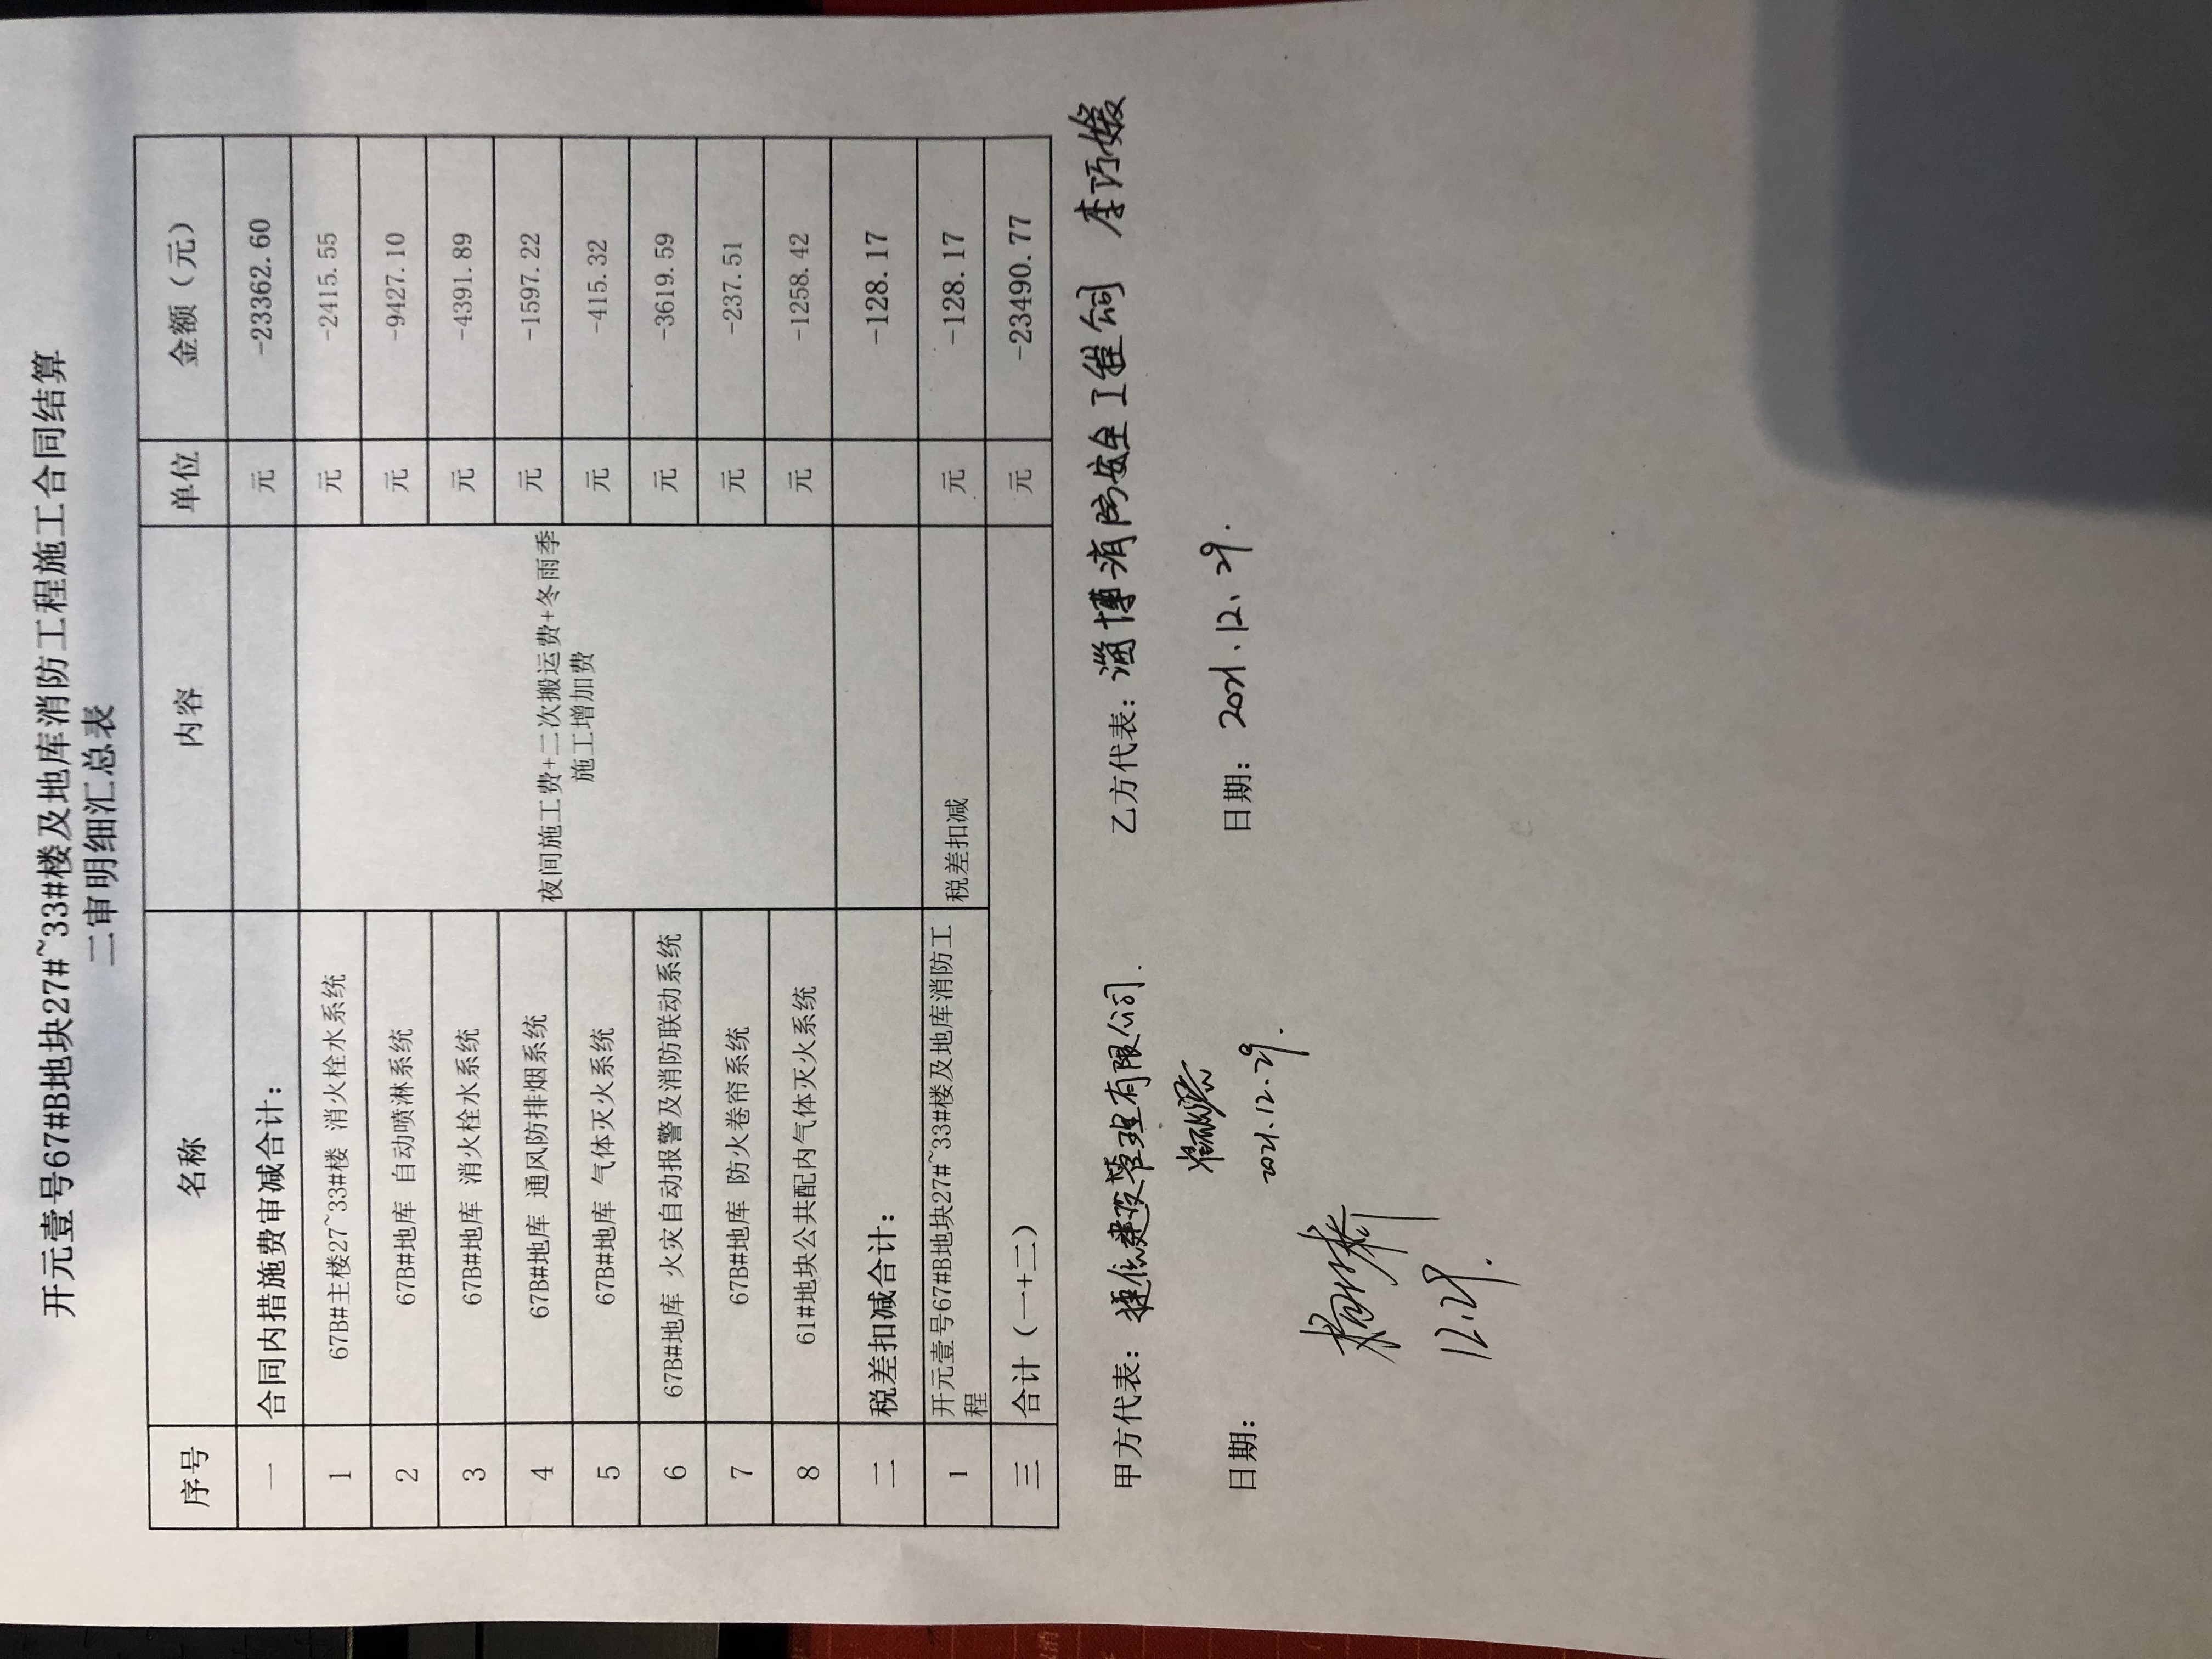 开元壹号67#B地块27#~33#楼及地库消防工程施工合同结算
二审明细汇总表
序号 名称 内容 单位 金额（元）
一 合同内措施费审减合计： 元 -23362.60
1 67B#主楼27~33#楼 消火栓水系统 元 -2415.55
2 67B#地库 自动喷淋系统 元 -9427.10
3 67B#地库 消火栓水系统 元 -4391.89
4 67B#地库 通风防排烟系统 元 -1597.22
夜间施工费+二次搬运费+冬雨季
施工增加费
5 67B#地库 气体灭火系统 元 -415.32
6 67B#地库 火灾自动报警及消防联动系统 元 -3619.59
7 67B#地库 防火卷帘系统 元 -237.51
8 61#地块公共配内气体灭火系统 元 -1258.42
二 税差扣减合计： -128.17
1 开元壹号67#B地块27#~33#楼及地库消防工
程 税差扣减 元 -128.17
三 合计（一+二） 元 -23490.77
甲方代表： 建设管理有限公司. 乙方代表：淄博消防安全工程公司 李巧媛
日期： 2021.12.29. 日期：2021.12.29.
12.29.